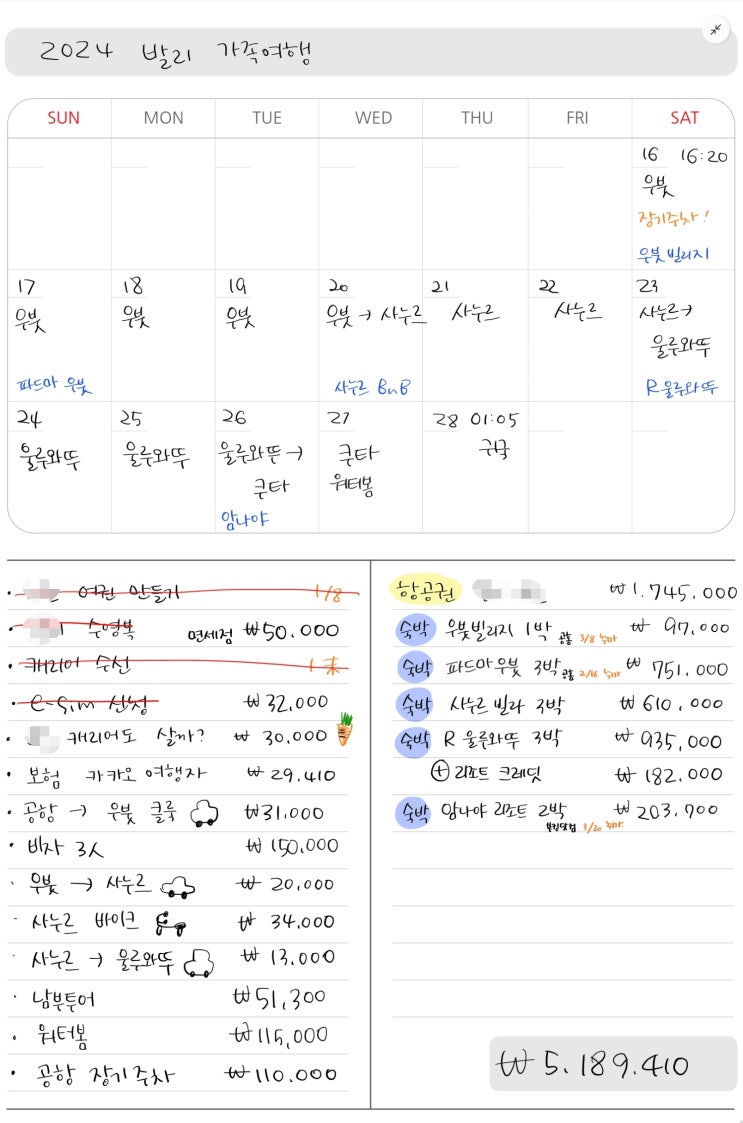 2024 발리 가족여행
SUN MON TUE WED THU FRI SAT
16 16:20
우붓
장기주차!
우붓빌리지
17 18 19 20 21 22 23
우붓 우붓 우붓 우붓 → 사누르 사누르 사누르 사누르→
울루와뚜
파드마 우붓 사누르 BnB R 울루와뚜
24 25 26 27 28 01:05
울루와뚜 울루와뚜 울루와뚜 → 쿠타 귀국
쿠타 워터봄
암나야
· 여권 만들기 1/8
· 수영복 면세점 ₩50.000
· 캐리어 수선 1末
· e-sim 신청 ₩32,000
· 캐리어도 살까? ₩ 30.000
· 보험 카카오 여행자 ₩29.410
· 공항 → 우붓 클룩 ₩31.000
· 비자 3人 ₩150,000
· 우붓 → 사누르 ₩ 20,000
· 사누르 바이크 ₩ 34.000
· 사누르 → 울루와뚜 ₩ 13.000
· 남부투어 ₩51,300
· 워터봄 ₩115,000
· 공항 장기주차 ₩110.000
항공권 ₩1.745.000
숙박 우붓빌리지 1박 3/8 ₩ 97.000
숙박 파드마우붓 3박 2/16 ₩ 751.000
숙박 사누르 빌라 3박 ₩610.000
숙박 R 울루와뚜 3박 ₩935,000
+ 리조트 크레딧 ₩ 182.000
숙박 암나야 리조트 2박 ₩203,700
부킹닷컴 3/20
₩5.189.410